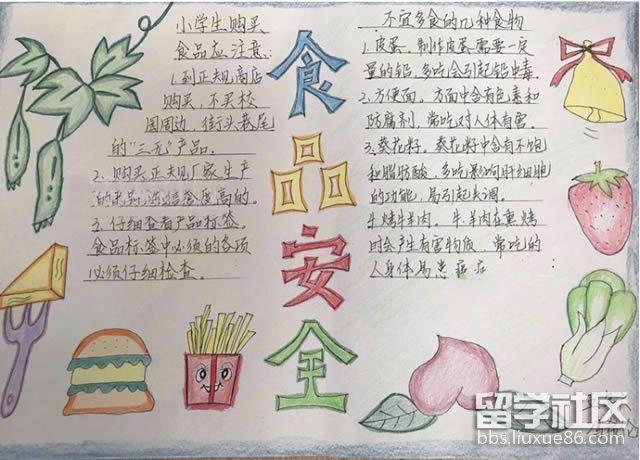 小学生购买
食品应注意:
1.到正规商店
购买,不买校
园周边、街头巷尾
的"三无"产品。
2.购买正规厂家生产
的产品,
3.仔细查看产品标签。
食品标签中必须的各项
必须仔细检查。
食品安全
不宜多食的几种食物
1.皮蛋。制作皮蛋需要一定
量的铅,多吃会引起铅中毒。
2.方便面。方面中含有色素和
防腐剂,常吃对人体有害。
3.葵花籽。葵花籽中含有不饱
和脂肪酸,多吃影响肝细胞
的功能,易引起失调。
4.烤牛羊肉。牛羊肉在熏烤
时会产生有害物质,常吃的
人身体易患癌症
留学社区
bbs.liuxue86.com